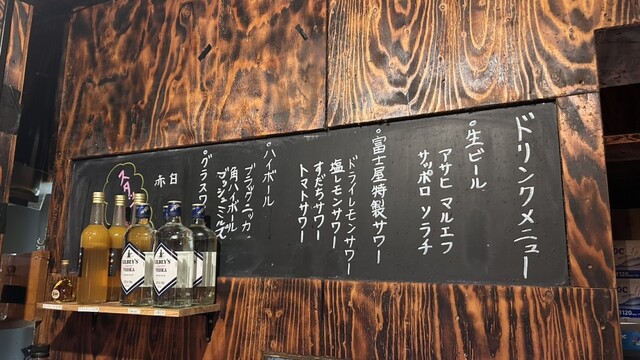 ドリンクメニュー
○生ビール
アサヒ マルエフ
サッポロ ソラチ
○富士屋特製サワー
ドライレモンサワー
塩レモンサワー
すだちサワー
トマトサワー
○ハイボール
ブラックニッカ
角ハイボール
○グラスワ
赤 白
スタ
VODKA